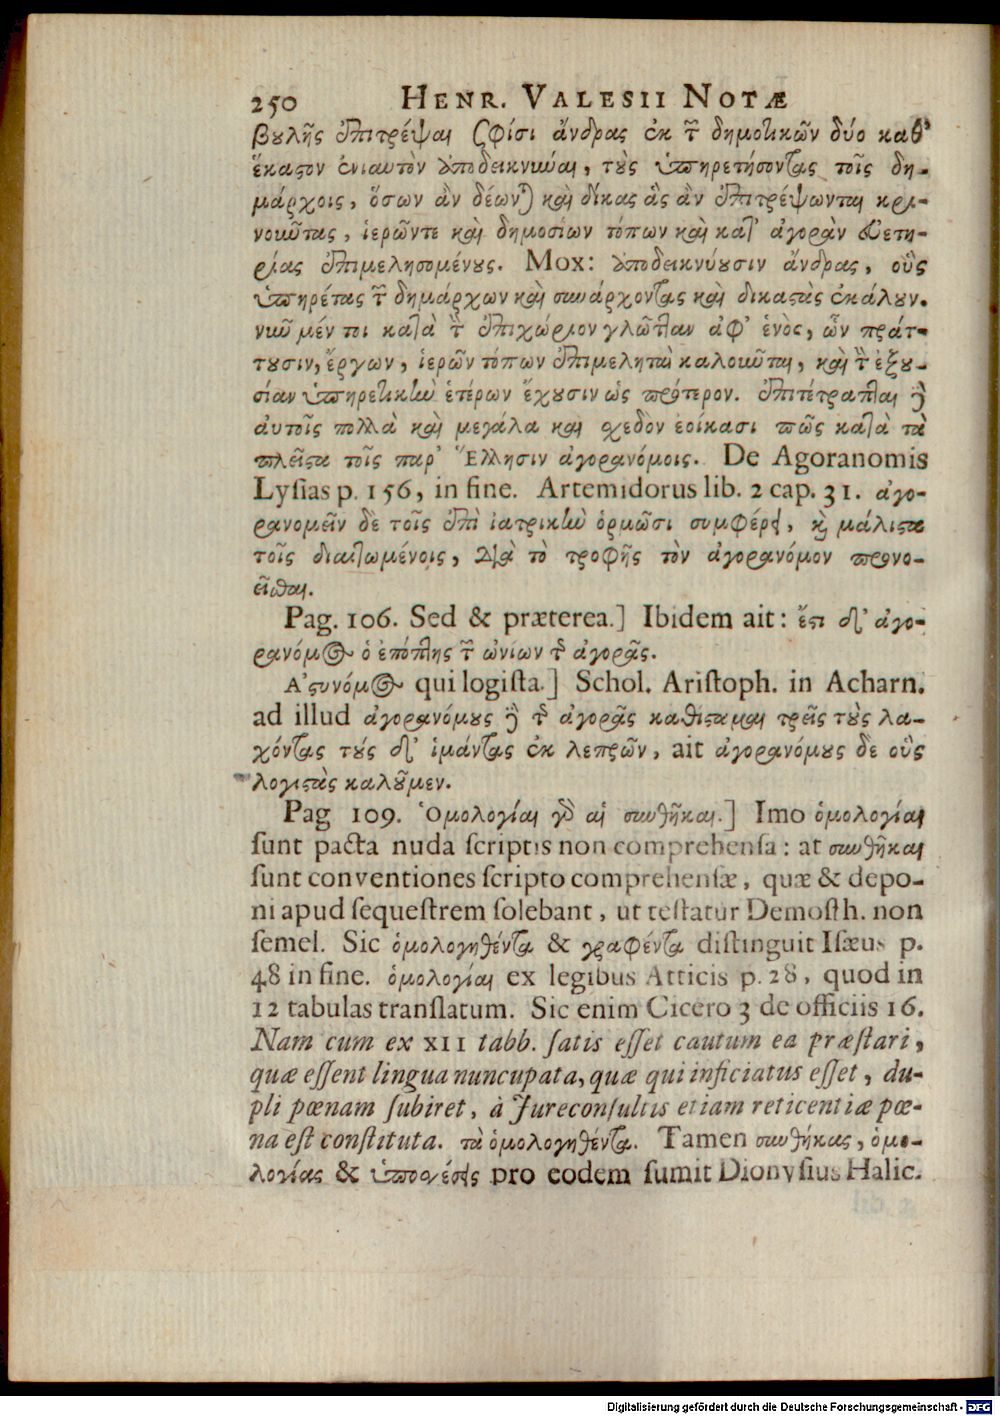 250 HENR. VALESII NOTÆ
βουλῆς ἐπιτρέψαι σφίσι ἄνδρας ἐκ τῶν δημοτικῶν δύο καθ'
ἕκαστον ἐνιαυτὸν ἀποδεικνύναι, τοὺς ὑπηρετήσοντας τοῖς δη-
μάρχοις, ὅσων ἂν δέωνται καὶ δίκας ἃς ἂν ἐπιτρέψωνται κρι-
νοῦντας, ἱερῶντε καὶ δημοσίων τόπων καὶ κατ' ἀγορὰν εὐετη-
ρίας ἐπιμελησομένους. Mox: ἀποδεικνύουσιν ἄνδρας, οὓς
ὑπηρέτας τῶν δημάρχων καὶ συνάρχοντας καὶ δικαστὰς ἐκάλουν.
νῦν μέν τοι κατὰ τὴν ἐπιχώριον γλῶτταν ἀφ' ἑνὸς, ὧν πράτ-
τουσιν, ἔργων, ἱερῶν τόπων ἐπιμεληταὶ καλοῦνται, καὶ τὴν ἐξου-
σίαν ὑπηρετικὴν ἑτέρων ἔχουσιν ὡς πρότερον. ἐπιτέτραπται δὲ
αὐτοῖς πολλὰ καὶ μεγάλα καὶ σχεδὸν ἐοίκασι πῶς κατὰ τὰ
πλεῖστα τοῖς παρ' Ἕλλησιν ἀγορανόμοις. De Agoranomis
Lysias p. 156, in fine. Artemidorus lib. 2 cap. 31. ἀγο-
ρανομεῖν δὲ τοῖς ἐπὶ ἰατρικὴν ὁρμῶσι συμφέρει, καὶ μάλιστα
τοῖς διαιτωμένοις, διὰ τὸ τροφῆς τὸν ἀγορανόμον προνο-
εῖσθαι.
Pag. 106. Sed & præterea.] Ibidem ait: ἔτι δ' ἀγο-
ρανόμος ὁ ἐπόπτης τῶν ὠνίων τῆς ἀγορᾶς.
Ἀστυνόμος qui logista.] Schol. Aristoph. in Acharn.
ad illud ἀγορανόμους δὲ τῆς ἀγορᾶς καθίσταμαι τρεῖς τοὺς λα-
χόντας τούς δ' ἱμάντας ἐκ λεπρῶν, ait ἀγορανόμους δὲ οὓς
λογιστὰς καλοῦμεν.
Pag 109. Ὁμολογίαι γὰρ αἱ συνθῆκαι.] Imo ὁμολογίαι
sunt pacta nuda scriptis non comprehensa: at συνθῆκαι
sunt conventiones scripto comprehensæ, quæ & depo-
ni apud sequestrem solebant, ut testatur Demosth. non
semel. Sic ὁμολογηθέντα & γραφέντα distinguit Isæus p.
48 in fine. ὁμολογίαι ex legibus Atticis p. 28, quod in
12 tabulas translatum. Sic enim Cicero 3 de officiis 16.
Nam cum ex XII tabb. satis esset cautum ea præstari,
quæ essent lingua nuncupata, quæ qui inficiatus esset, du-
pli pœnam subiret, à Jureconsultis etiam reticentiæ pœ-
na est constituta. τὰ ὁμολογηθέντα. Tamen συνθήκας, ὁμο-
λογίας & pro eodem sumit Dionysius Halic.
Digitalisierung gefördert durch die Deutsche Forschungsgemeinschaft - DFG